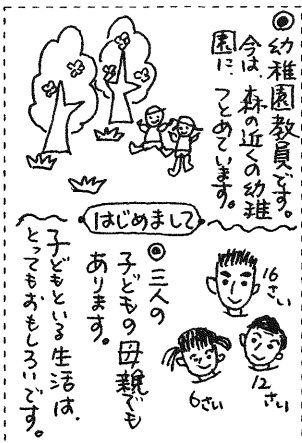 ◉幼稚園教員です。
今は、森の近くの幼稚
園に、つとめています。
はじめまして
◉三人の
子どもの母親でも
あります。
16さい
12さい
6さい
子どもといる生活は、
とってもおもしろいです。